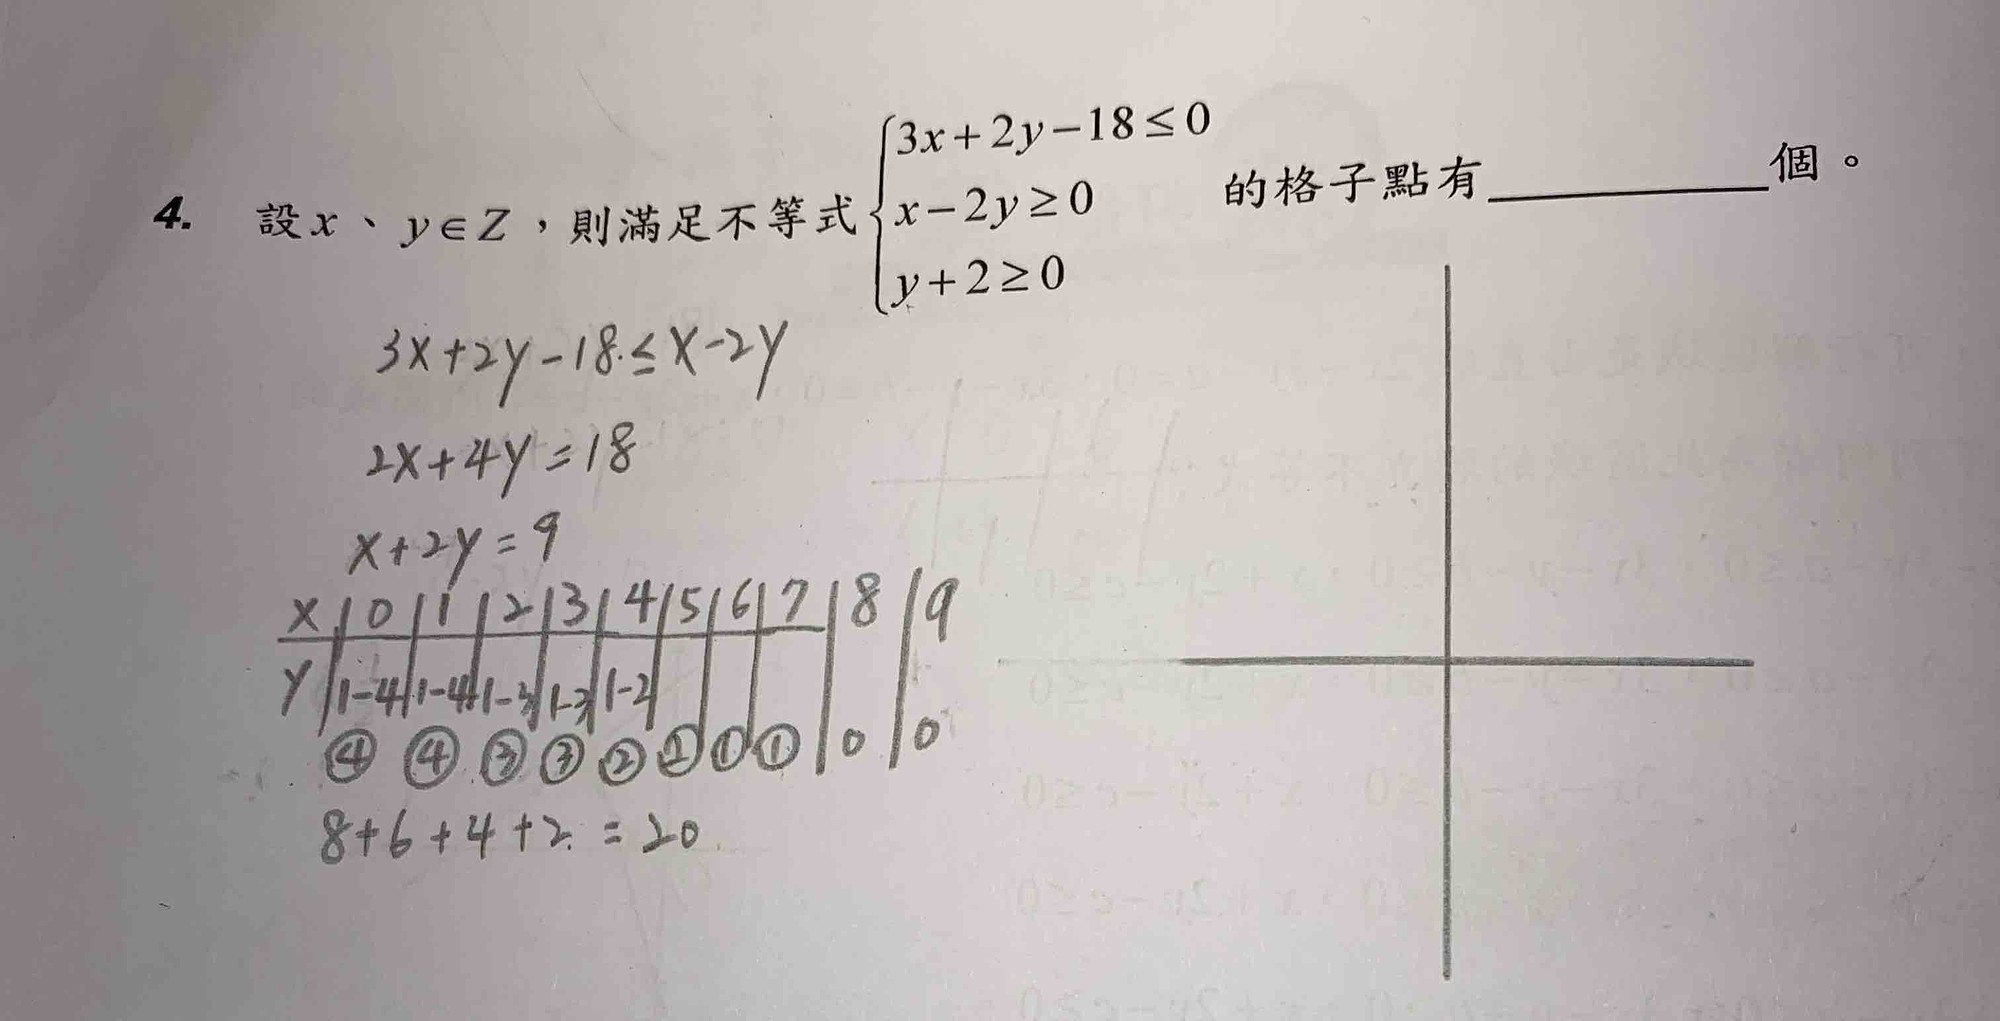 4. 設x、y∈Z，則滿足不等式{3x+2y-18≤0
x-2y≥0
y+2≥0
的格子點有________個。
3x+2y-18≤x-2y
2x+4y=18
x+2y=9
x 0 1 2 3 4 5 6 7 8 9
y 1-4 1-4 1-3 1-3 1-2
④ ④ ③ ③ ② ② ① ① 0 0
8+6+4+2=20